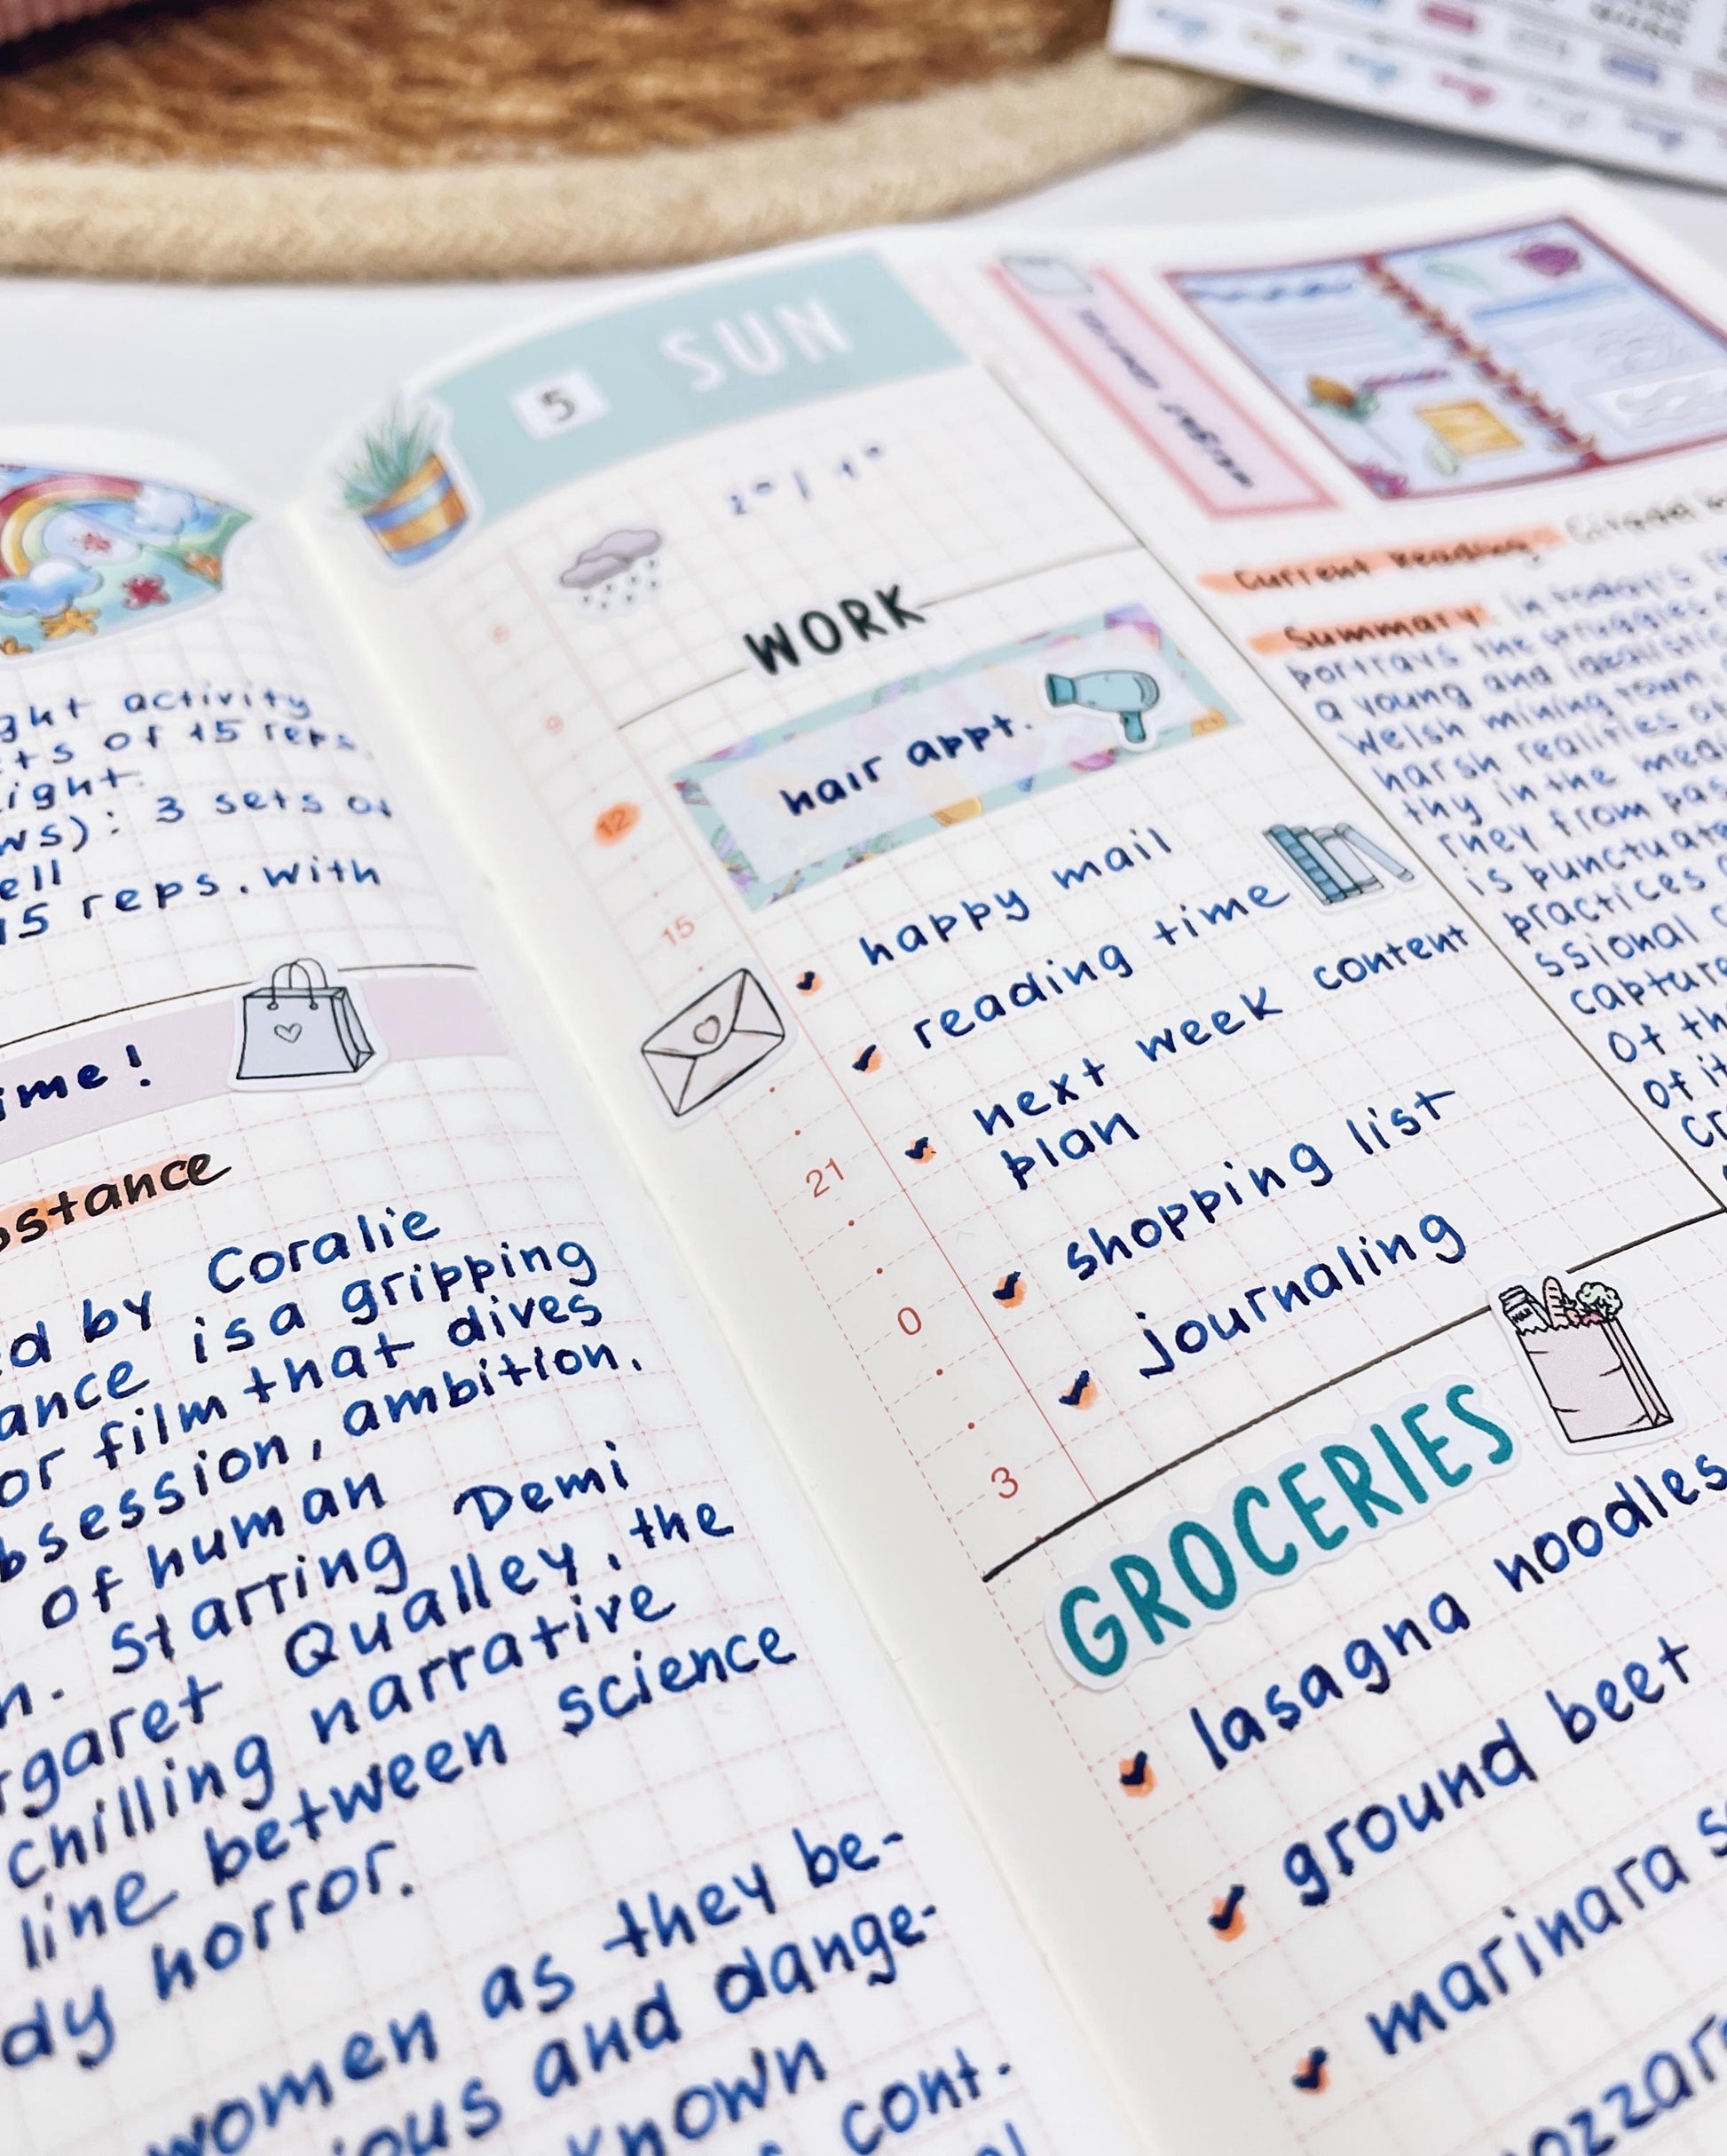 ght activity
ts of 15 reps.
ight.
ws): 3 sets of
ell
15 reps. With
ime!
bstance
ed by Coralie
ance is a gripping
or film that dives
bsession, ambition,
of human
n. Starring Demi
rgaret Qualley, the
chilling narrative
line between science
dy horror.
women as they be-
ious and dange-
known
cont.
5 SUN
WORK
hair appt.
9
12
15
21
0
3
happy mail
reading time
next week content
plan
shopping list
journaling
GROCERIES
lasagna noodles
ground beef
marinara s
ozzar
Current Reading: Citadel
Summary: In today's
portrays the struggles
a young and idealistic
Welsh mining town,
harsh realities of
thy in the medi
rney from pas
is punctuate
practices
ssional c
capture
of th
of it
cr